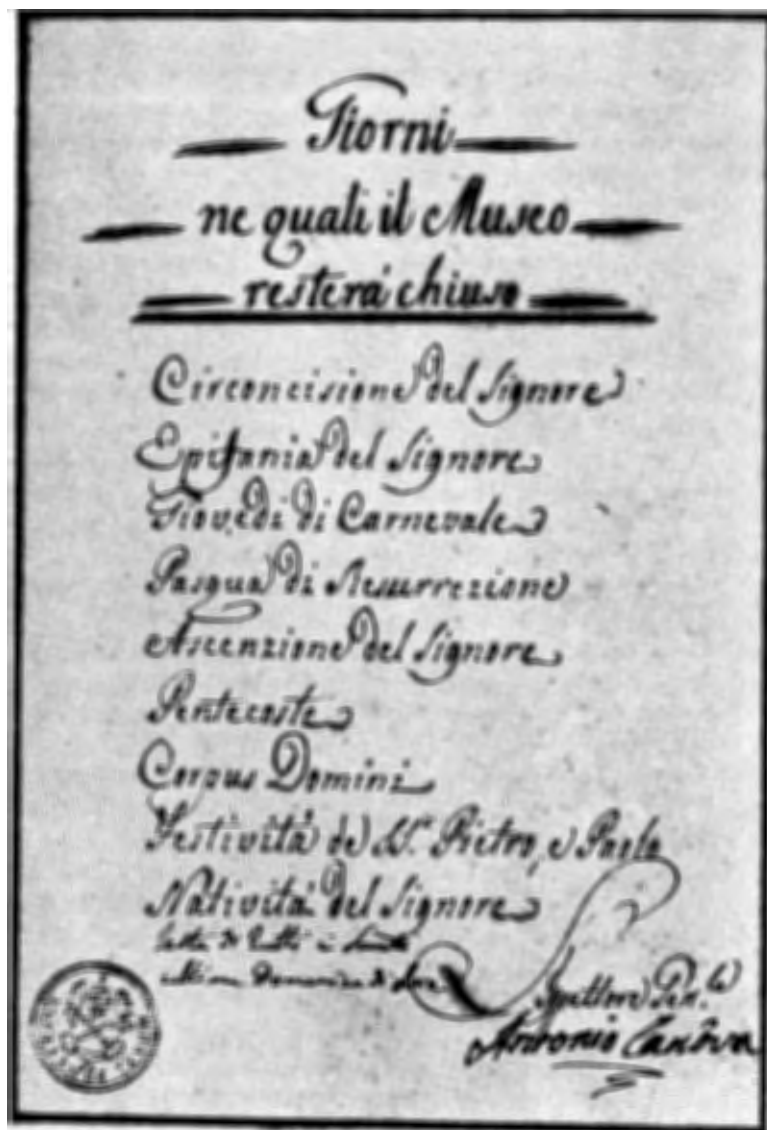 Giorni
ne quali il Museo
resterà chiuso
Circoncisione del Signore
Epifania del Signore
Giovedì di Carnevale
Pasqua di Resurrezione
Ascenzione del Signore
Pentecoste
Corpus Domini
Festività de SS. Pietro, e Paolo
Natività del Signore
festa di Tutti i Santi
Domenica di
Antonio Canova